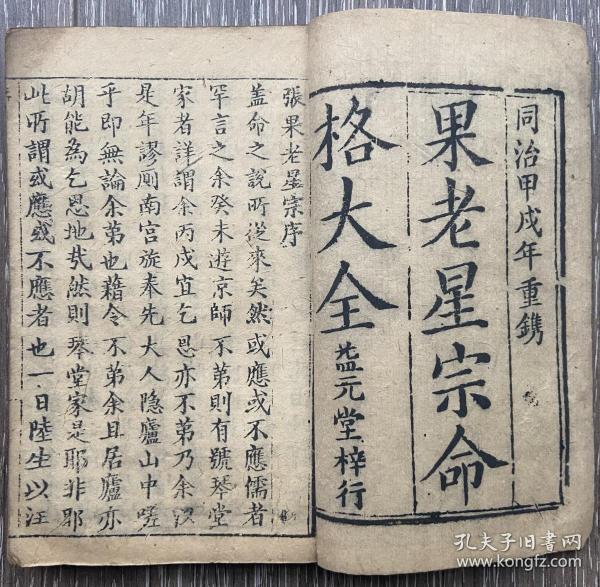 同治甲戌年重鐫
果老星宗命
格大全
益元堂梓行
張果老星宗序
蓋命之說所從來矣然或應或不應儒者
罕言之余癸未遊京師不第則有號琴堂
家者詳謂余丙戌宜乞恩亦不第乃余以
是年謬厠南宫旋奉先大人隐廬山中嗟
乎即無論余第也藉令不第余且居廬亦
胡能為乞恩地㢤然則琴堂家是耶非耶
此所謂或應或不應者也一日陸生以汪
孔夫子旧书网
kongfz.com